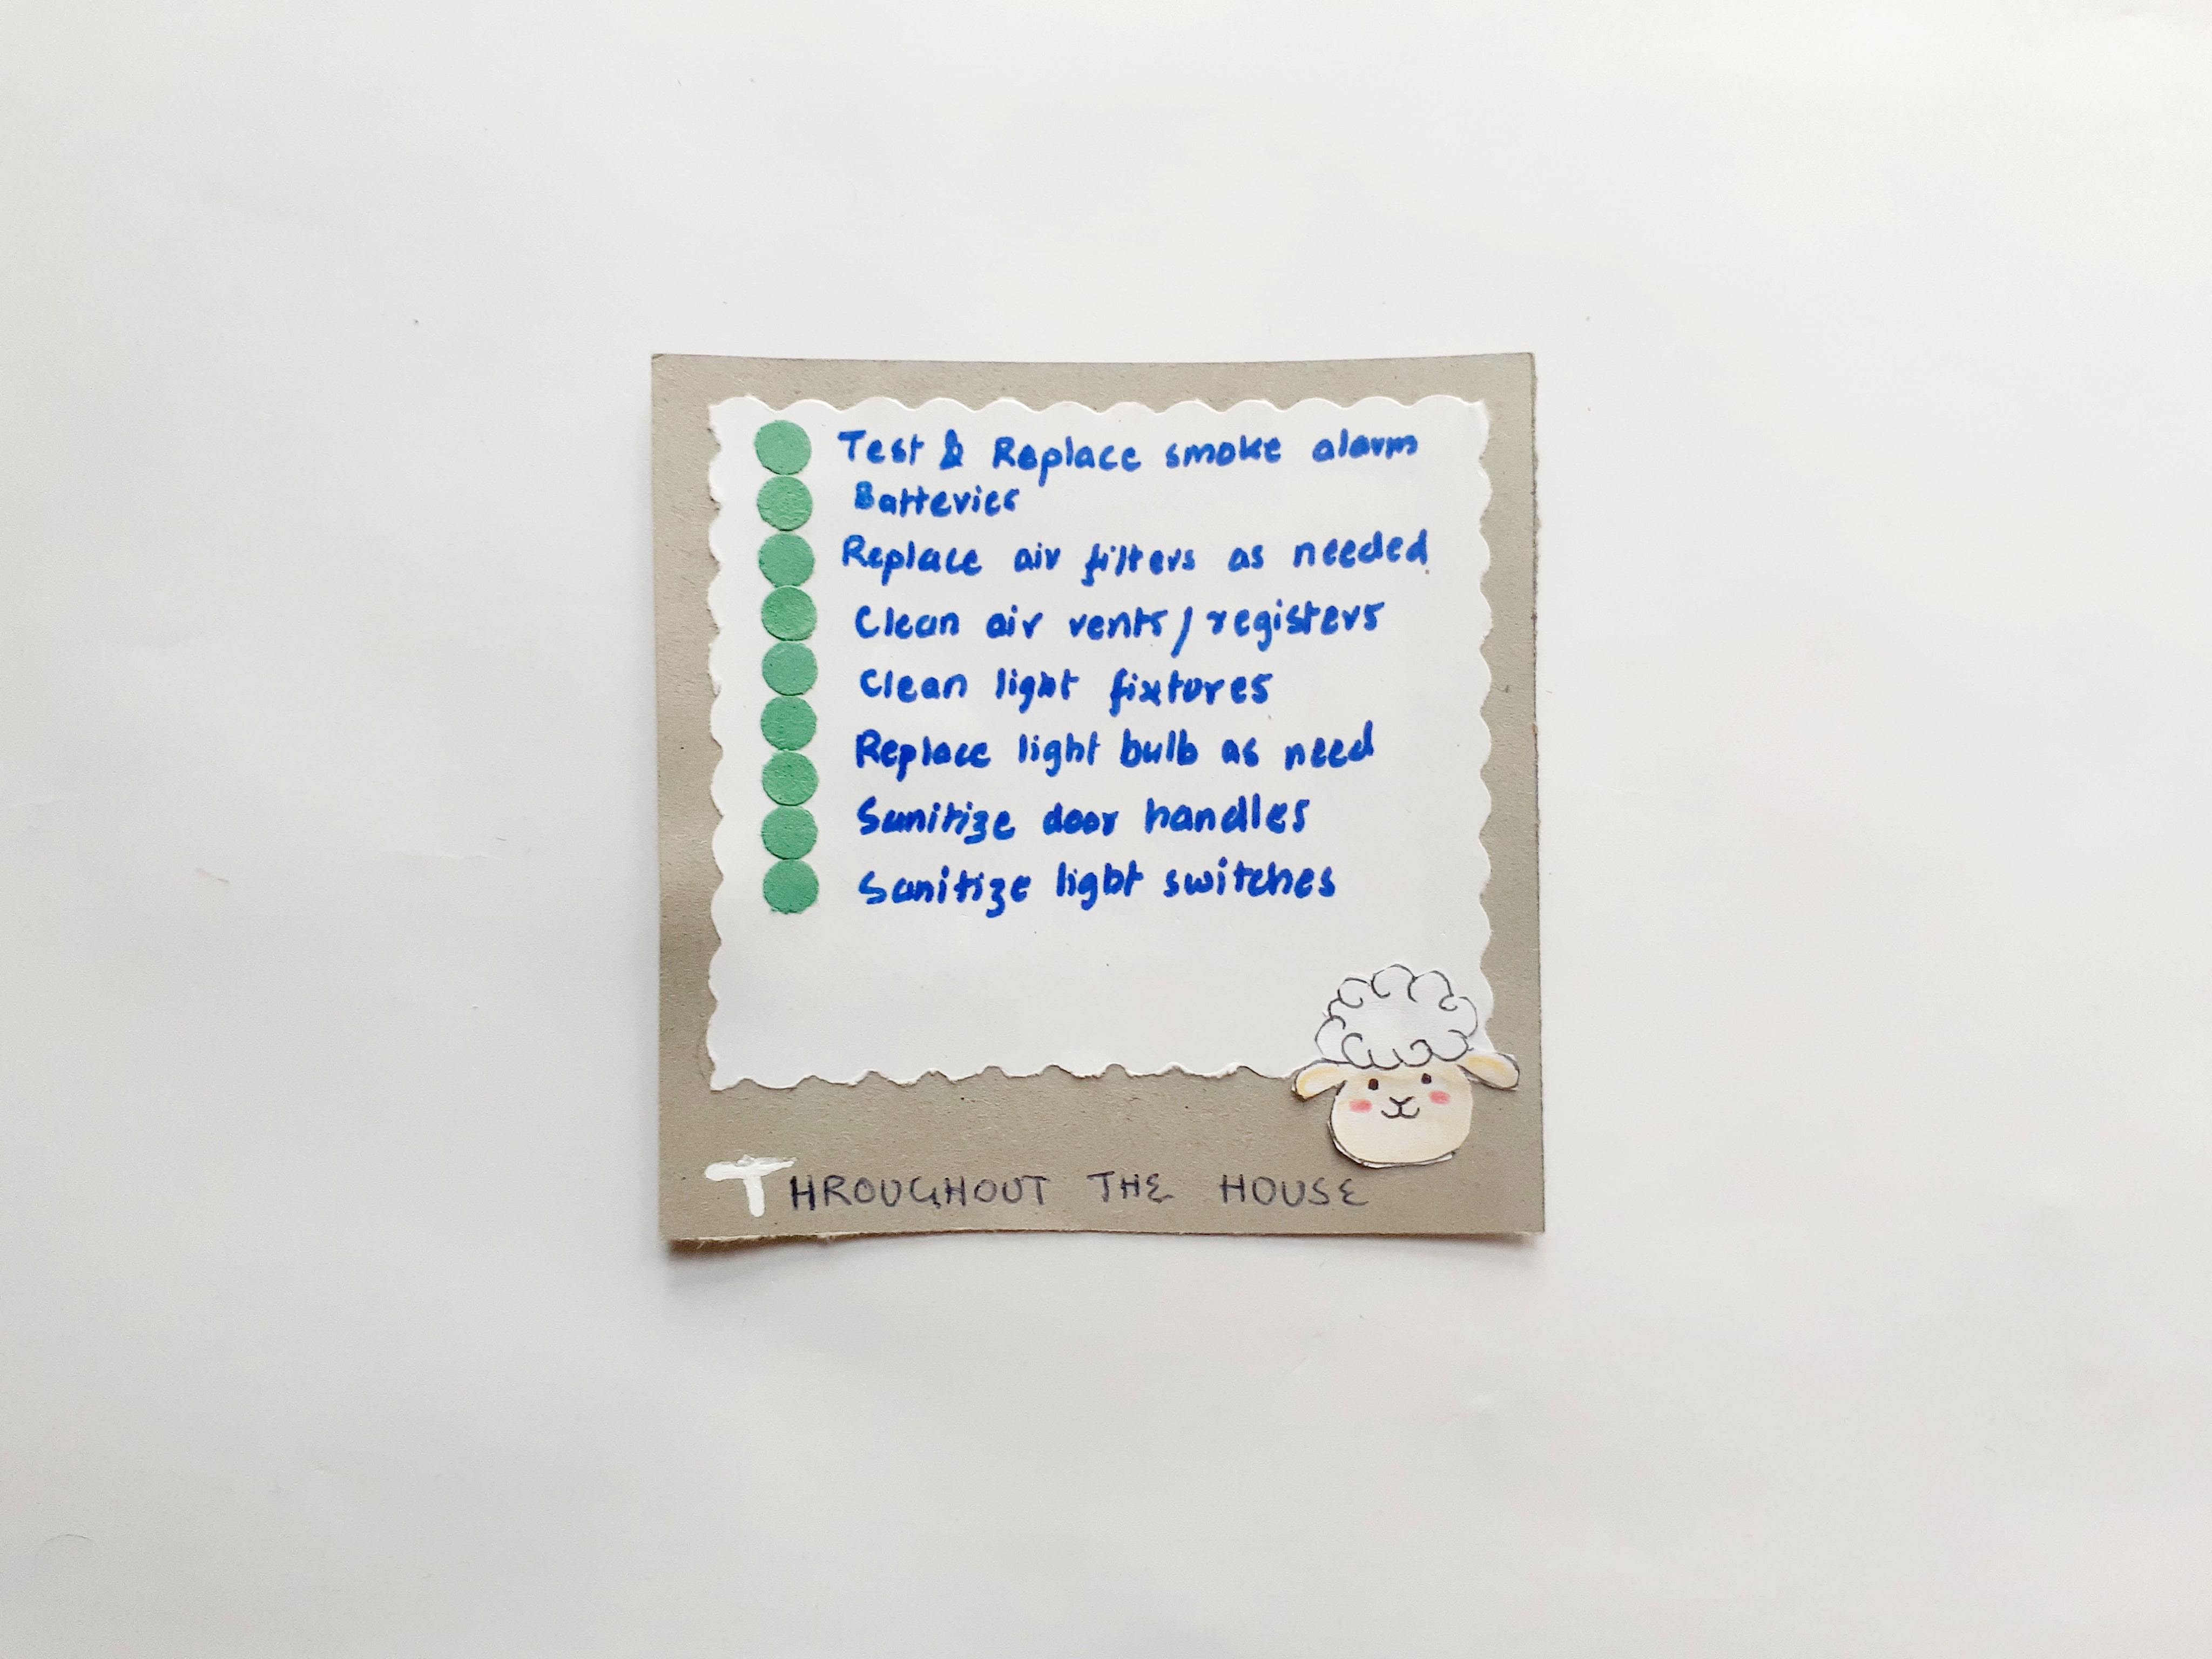 Test & Replace smoke alarm
Batteries
Replace air filters as needed
Clean air vents/registers
Clean light fixtures
Replace light bulb as need
Sanitize door handles
Sanitize light switches
THROUGHOUT THE HOUSE